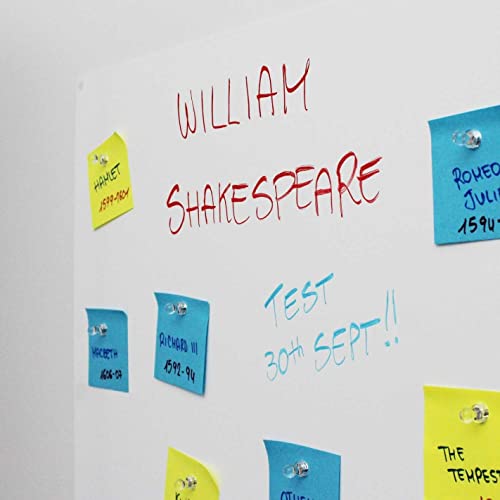 WILLIAM
SHAKESPEARE
HAMLET
1599-1601
ROMEO
JULI
1594-
TEST
30th SEPT!!
MACBETH
1606-07
RICHARD III
1592-94
THE
TEMPEST